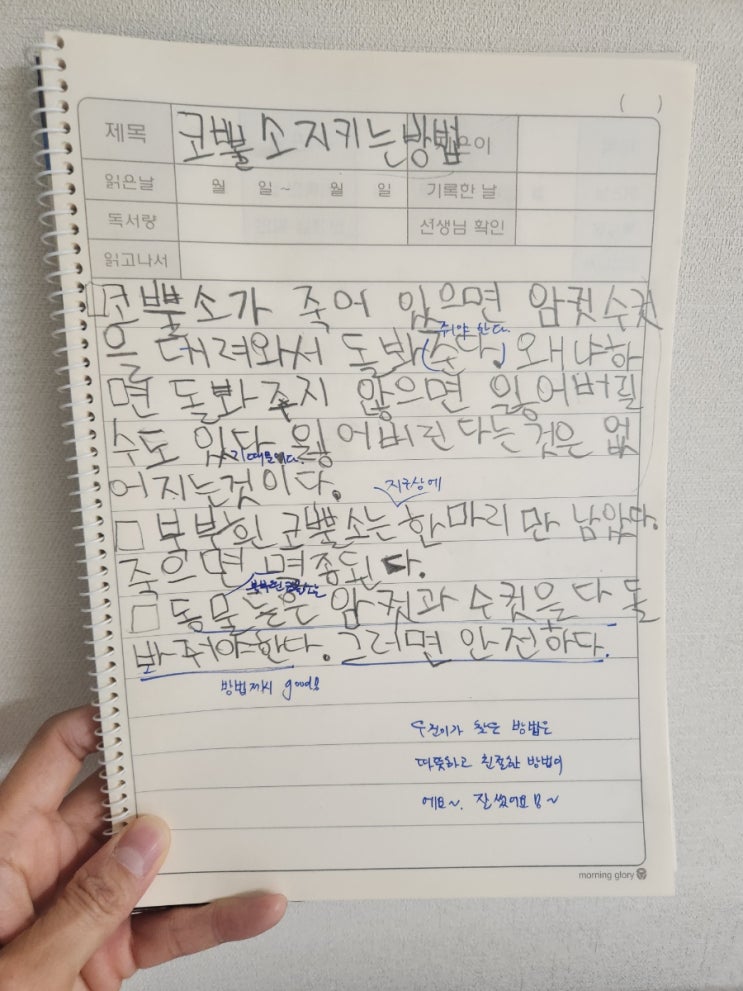 ( )
제목 코뿔소 지키는 방법
읽은날 월 일 ~ 월 일 기록한 날
독서량 선생님 확인
읽고나서
코뿔소가 죽어 있으면 암컷 수컷
줘야 한다.
을 데려와서 돌봐(준다.) 왜냐하
면 돌봐 주지 않으면 잃어버릴
수도 있다 잃어버린다는 것은 없
기 때문이다.
어지는것이다.
지구상에
북부흰 코뿔소는 한마리 만 남았다.
죽으면 멸종된다.
동물들은 암컷과 수컷을 다 돌
봐주어야한다. 그러면 안전하다.
방법까지 good!
우진이가 찾은 방법은
따뜻하고 친절한 방법이
에요~. 잘 썼어요 ~
morning glory